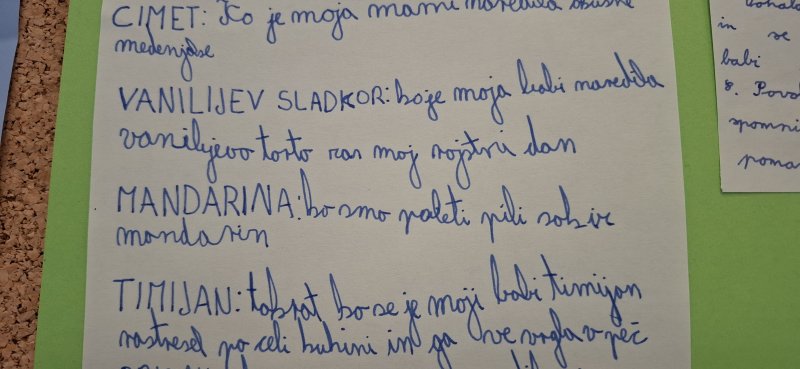 CIMET: Ko je moja mami naredila okusne
medenjake
VANILIJEV SLADKOR: ko je moja babi naredila
vaniljevo torto zar moj rojstni dan
MANDARINA: ko smo poleti pili sok iz
mandarin
TIMIJAN: takrat ko se je moji babi timijan
rastresel po celi kuhini in ga vse vrgla v peč
in se
babi
8.
spomni